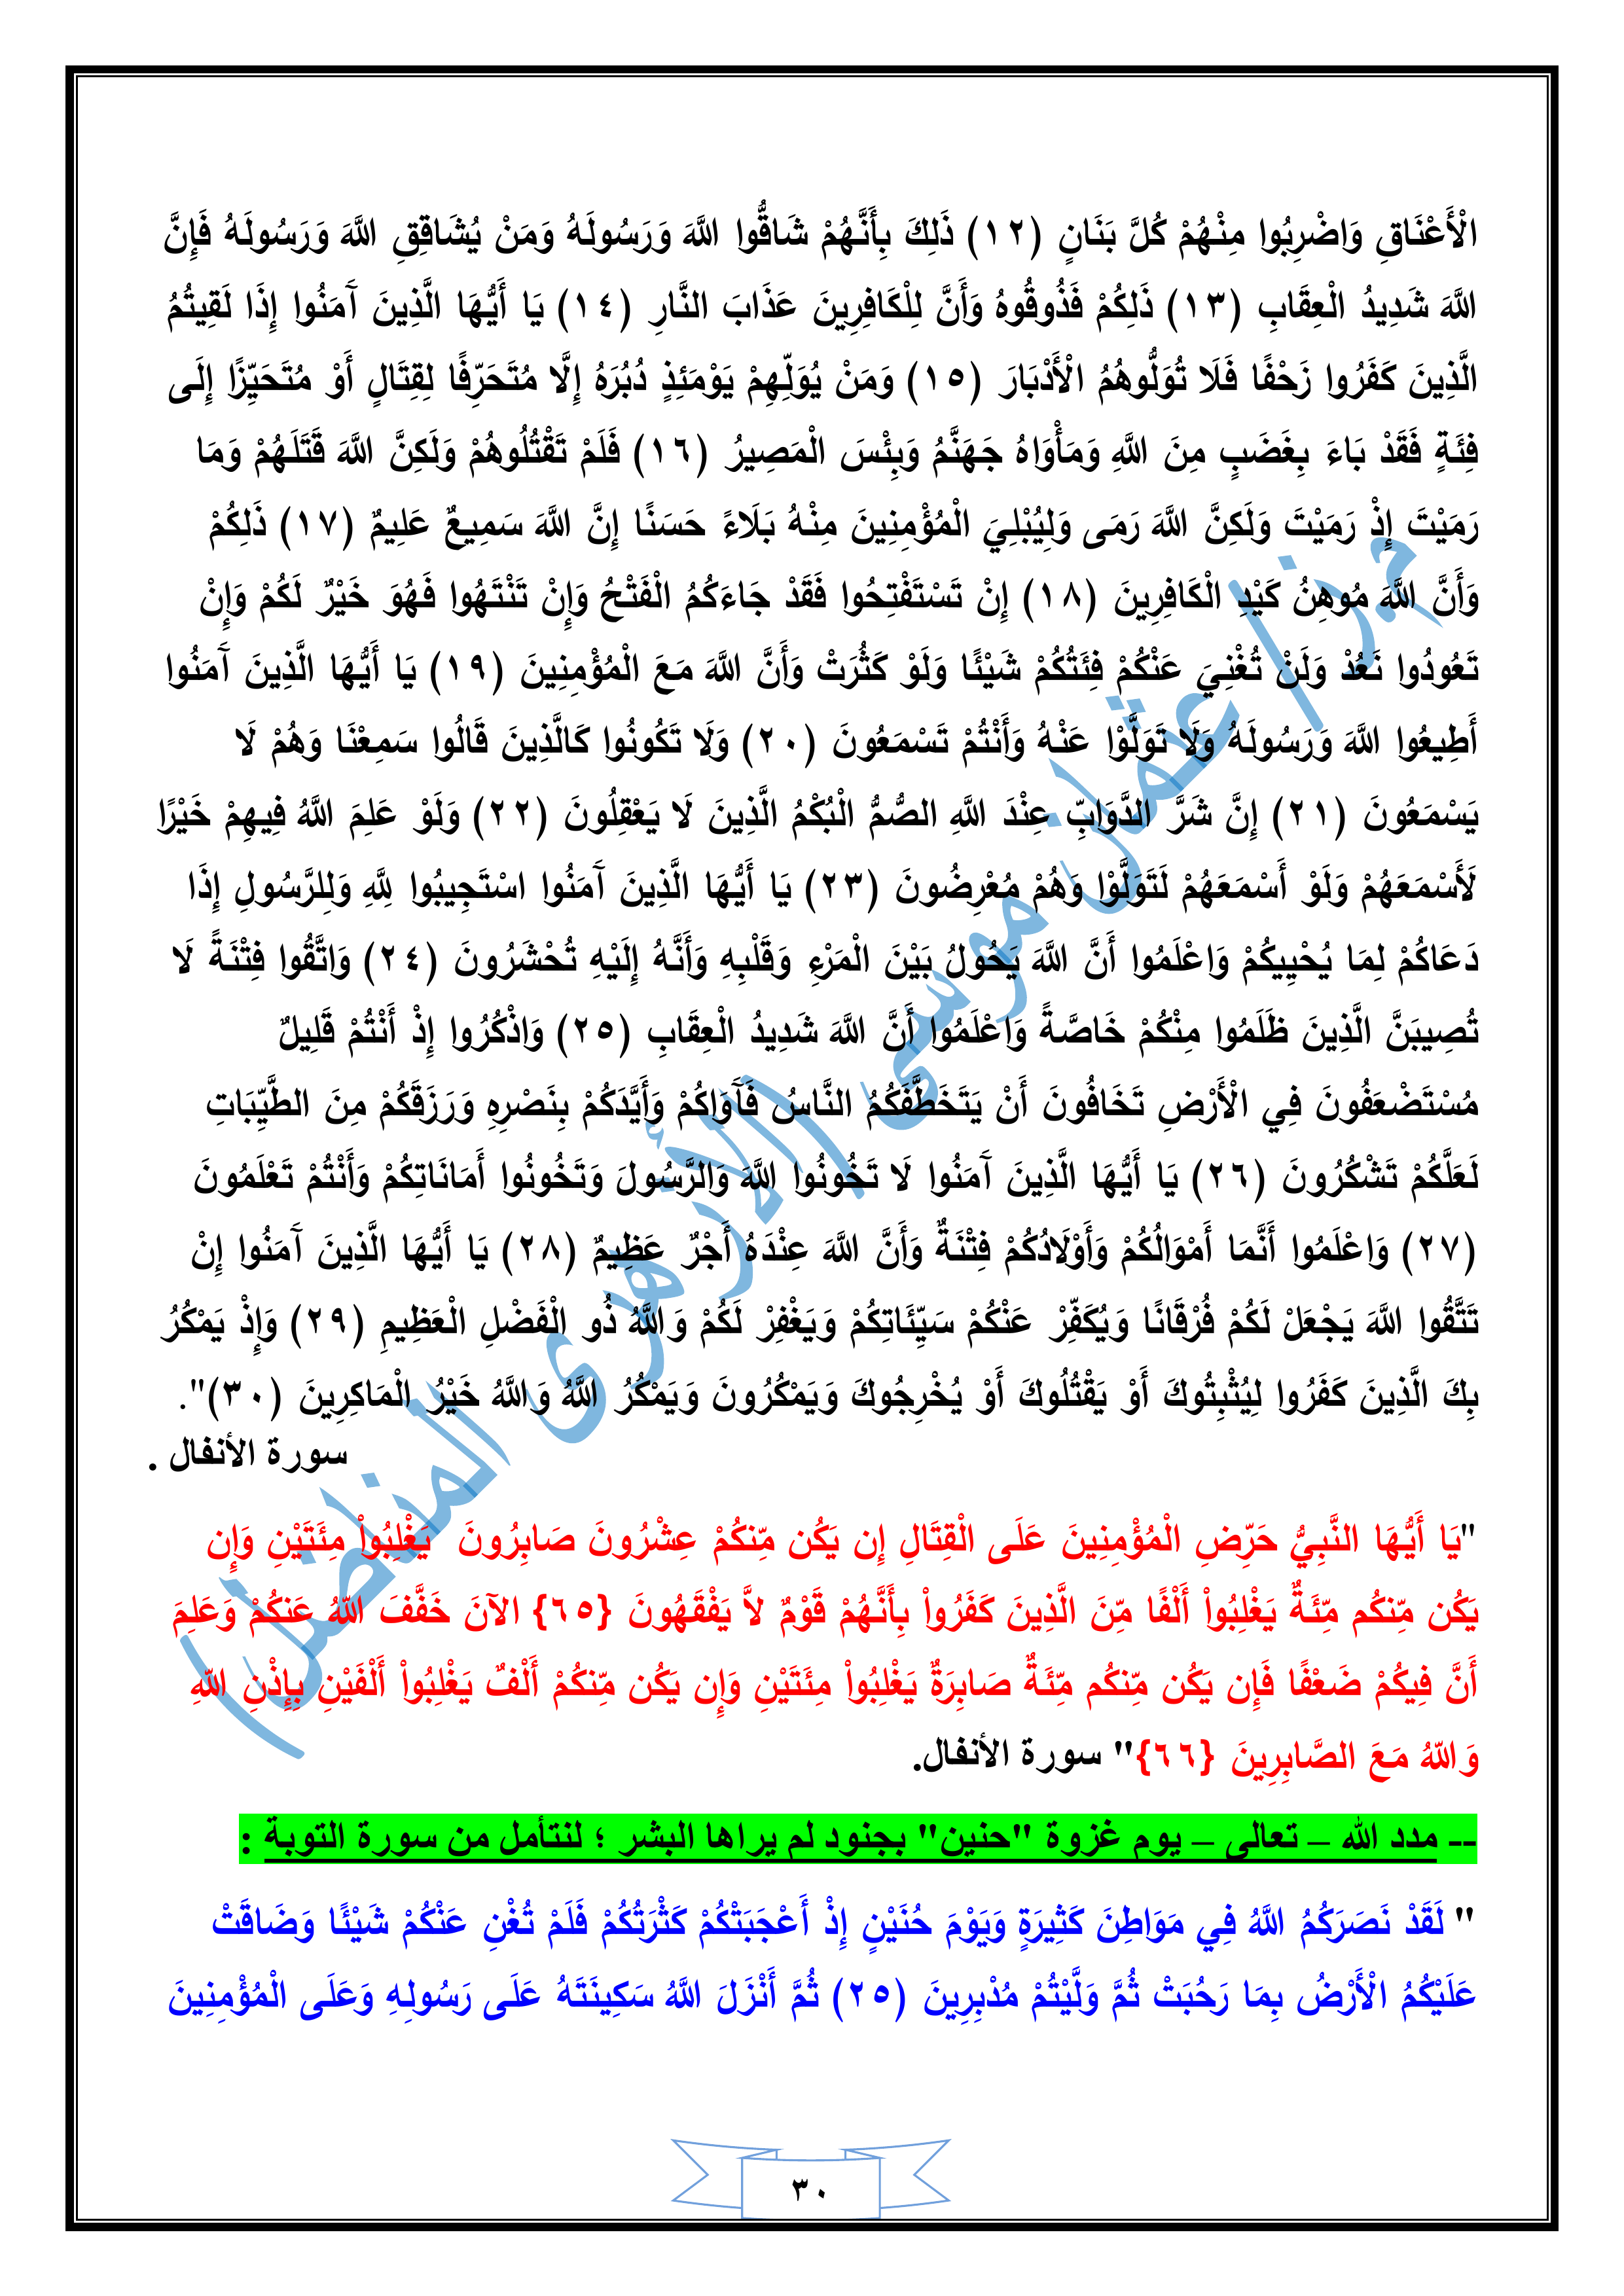 الْأَعْنَاقِ وَاضْرِبُوا مِنْهُمْ كُلَّ بَنَانٍ (١٢) ذَلِكَ بِأَنَّهُمْ شَاقُّوا اللَّهَ وَرَسُولَهُ وَمَنْ يُشَاقِقِ اللَّهَ وَرَسُولَهُ فَإِنَّ
اللَّهَ شَدِيدُ الْعِقَابِ (١٣) ذَلِكُمْ فَذُوقُوهُ وَأَنَّ لِلْكَافِرِينَ عَذَابَ النَّارِ (١٤) يَا أَيُّهَا الَّذِينَ آَمَنُوا إِذَا لَقِيتُمُ
الَّذِينَ كَفَرُوا زَحْفًا فَلَا تُوَلُّوهُمُ الْأَدْبَارَ (١٥) وَمَنْ يُوَلِّهِمْ يَوْمَئِذٍ دُبُرَهُ إِلَّا مُتَحَرِّفًا لِقِتَالٍ أَوْ مُتَحَيِّزًا إِلَى
فِئَةٍ فَقَدْ بَاءَ بِغَضَبٍ مِنَ اللَّهِ وَمَأْوَاهُ جَهَنَّمُ وَبِئْسَ الْمَصِيرُ (١٦) فَلَمْ تَقْتُلُوهُمْ وَلَكِنَّ اللَّهَ قَتَلَهُمْ وَمَا
رَمَيْتَ إِذْ رَمَيْتَ وَلَكِنَّ اللَّهَ رَمَى وَلِيُبْلِيَ الْمُؤْمِنِينَ مِنْهُ بَلَاءً حَسَنًا إِنَّ اللَّهَ سَمِيعٌ عَلِيمٌ (١٧) ذَلِكُمْ
وَأَنَّ اللَّهَ مُوهِنُ كَيْدِ الْكَافِرِينَ (١٨) إِنْ تَسْتَفْتِحُوا فَقَدْ جَاءَكُمُ الْفَتْحُ وَإِنْ تَنْتَهُوا فَهُوَ خَيْرٌ لَكُمْ وَإِنْ
تَعُودُوا نَعُدْ وَلَنْ تُغْنِيَ عَنْكُمْ فِئَتُكُمْ شَيْئًا وَلَوْ كَثُرَتْ وَأَنَّ اللَّهَ مَعَ الْمُؤْمِنِينَ (١٩) يَا أَيُّهَا الَّذِينَ آَمَنُوا
أَطِيعُوا اللَّهَ وَرَسُولَهُ وَلَا تَوَلَّوْا عَنْهُ وَأَنْتُمْ تَسْمَعُونَ (٢٠) وَلَا تَكُونُوا كَالَّذِينَ قَالُوا سَمِعْنَا وَهُمْ لَا
يَسْمَعُونَ (٢١) إِنَّ شَرَّ الدَّوَابِّ عِنْدَ اللَّهِ الصُّمُّ الْبُكْمُ الَّذِينَ لَا يَعْقِلُونَ (٢٢) وَلَوْ عَلِمَ اللَّهُ فِيهِمْ خَيْرًا
لَأَسْمَعَهُمْ وَلَوْ أَسْمَعَهُمْ لَتَوَلَّوْا وَهُمْ مُعْرِضُونَ (٢٣) يَا أَيُّهَا الَّذِينَ آَمَنُوا اسْتَجِيبُوا لِلَّهِ وَلِلرَّسُولِ إِذَا
دَعَاكُمْ لِمَا يُحْيِيكُمْ وَاعْلَمُوا أَنَّ اللَّهَ يَحُولُ بَيْنَ الْمَرْءِ وَقَلْبِهِ وَأَنَّهُ إِلَيْهِ تُحْشَرُونَ (٢٤) وَاتَّقُوا فِتْنَةً لَا
تُصِيبَنَّ الَّذِينَ ظَلَمُوا مِنْكُمْ خَاصَّةً وَاعْلَمُوا أَنَّ اللَّهَ شَدِيدُ الْعِقَابِ (٢٥) وَاذْكُرُوا إِذْ أَنْتُمْ قَلِيلٌ
مُسْتَضْعَفُونَ فِي الْأَرْضِ تَخَافُونَ أَنْ يَتَخَطَّفَكُمُ النَّاسُ فَآَوَاكُمْ وَأَيَّدَكُمْ بِنَصْرِهِ وَرَزَقَكُمْ مِنَ الطَّيِّبَاتِ
لَعَلَّكُمْ تَشْكُرُونَ (٢٦) يَا أَيُّهَا الَّذِينَ آَمَنُوا لَا تَخُونُوا اللَّهَ وَالرَّسُولَ وَتَخُونُوا أَمَانَاتِكُمْ وَأَنْتُمْ تَعْلَمُونَ
(٢٧) وَاعْلَمُوا أَنَّمَا أَمْوَالُكُمْ وَأَوْلَادُكُمْ فِتْنَةٌ وَأَنَّ اللَّهَ عِنْدَهُ أَجْرٌ عَظِيمٌ (٢٨) يَا أَيُّهَا الَّذِينَ آَمَنُوا إِنْ
تَتَّقُوا اللَّهَ يَجْعَلْ لَكُمْ فُرْقَانًا وَيُكَفِّرْ عَنْكُمْ سَيِّئَاتِكُمْ وَيَغْفِرْ لَكُمْ وَاللَّهُ ذُو الْفَضْلِ الْعَظِيمِ (٢٩) وَإِذْ يَمْكُرُ
بِكَ الَّذِينَ كَفَرُوا لِيُثْبِتُوكَ أَوْ يَقْتُلُوكَ أَوْ يُخْرِجُوكَ وَيَمْكُرُونَ وَيَمْكُرُ اللَّهُ وَاللَّهُ خَيْرُ الْمَاكِرِينَ (٣٠)".
سورة الأنفال .
"يَا أَيُّهَا النَّبِيُّ حَرِّضِ الْمُؤْمِنِينَ عَلَى الْقِتَالِ إِن يَكُن مِّنكُمْ عِشْرُونَ صَابِرُونَ يَغْلِبُواْ مِئَتَيْنِ وَإِن
يَكُن مِّنكُم مِّئَةٌ يَغْلِبُواْ أَلْفًا مِّنَ الَّذِينَ كَفَرُواْ بِأَنَّهُمْ قَوْمٌ لاَّ يَفْقَهُونَ {٦٥} الآنَ خَفَّفَ اللّهُ عَنكُمْ وَعَلِمَ
أَنَّ فِيكُمْ ضَعْفًا فَإِن يَكُن مِّنكُم مِّئَةٌ صَابِرَةٌ يَغْلِبُواْ مِئَتَيْنِ وَإِن يَكُن مِّنكُمْ أَلْفٌ يَغْلِبُواْ أَلْفَيْنِ بِإِذْنِ اللّهِ
وَاللّهُ مَعَ الصَّابِرِينَ {٦٦}" سورة الأنفال.
-- مدد الله – تعالى – يوم غزوة "حنين" بجنود لم يراها البشر ؛ لنتأمل من سورة التوبة :
" لَقَدْ نَصَرَكُمُ اللَّهُ فِي مَوَاطِنَ كَثِيرَةٍ وَيَوْمَ حُنَيْنٍ إِذْ أَعْجَبَتْكُمْ كَثْرَتُكُمْ فَلَمْ تُغْنِ عَنْكُمْ شَيْئًا وَضَاقَتْ
عَلَيْكُمُ الْأَرْضُ بِمَا رَحُبَتْ ثُمَّ وَلَّيْتُمْ مُدْبِرِينَ (٢٥) ثُمَّ أَنْزَلَ اللَّهُ سَكِينَتَهُ عَلَى رَسُولِهِ وَعَلَى الْمُؤْمِنِينَ
٣٠